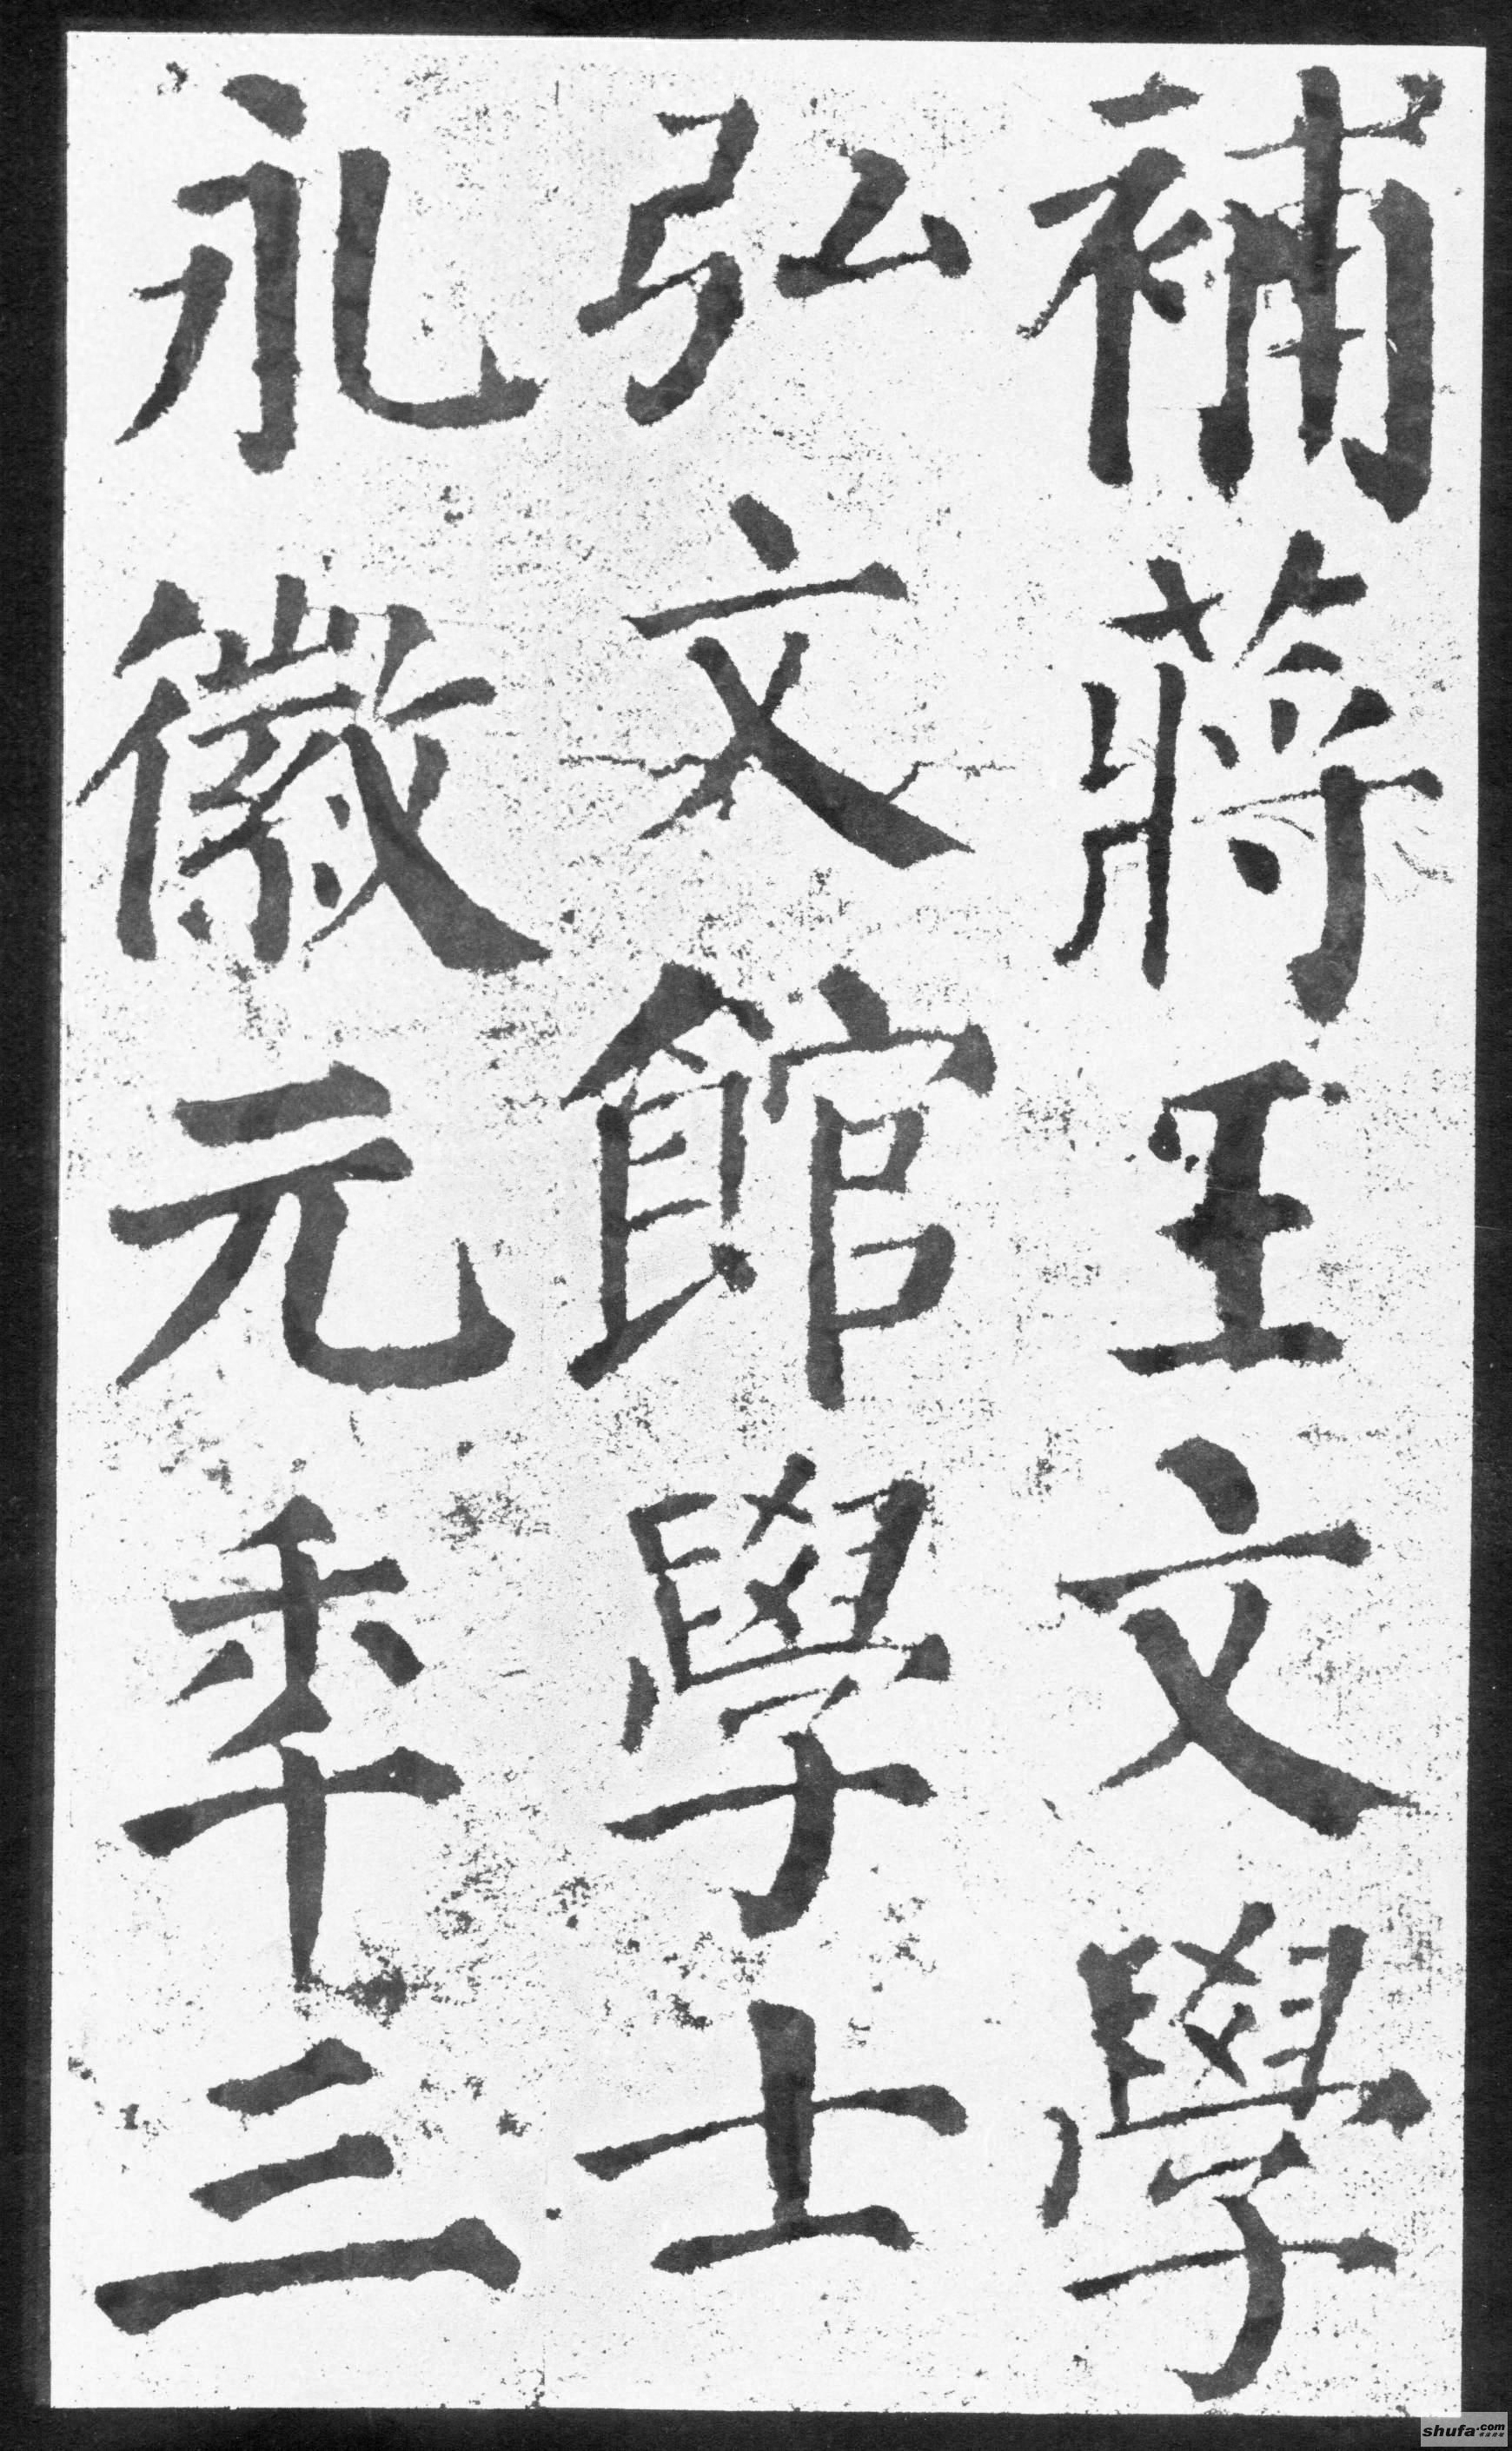 補蔣王文學
弘文館學士
永徽元年三
shufa.com